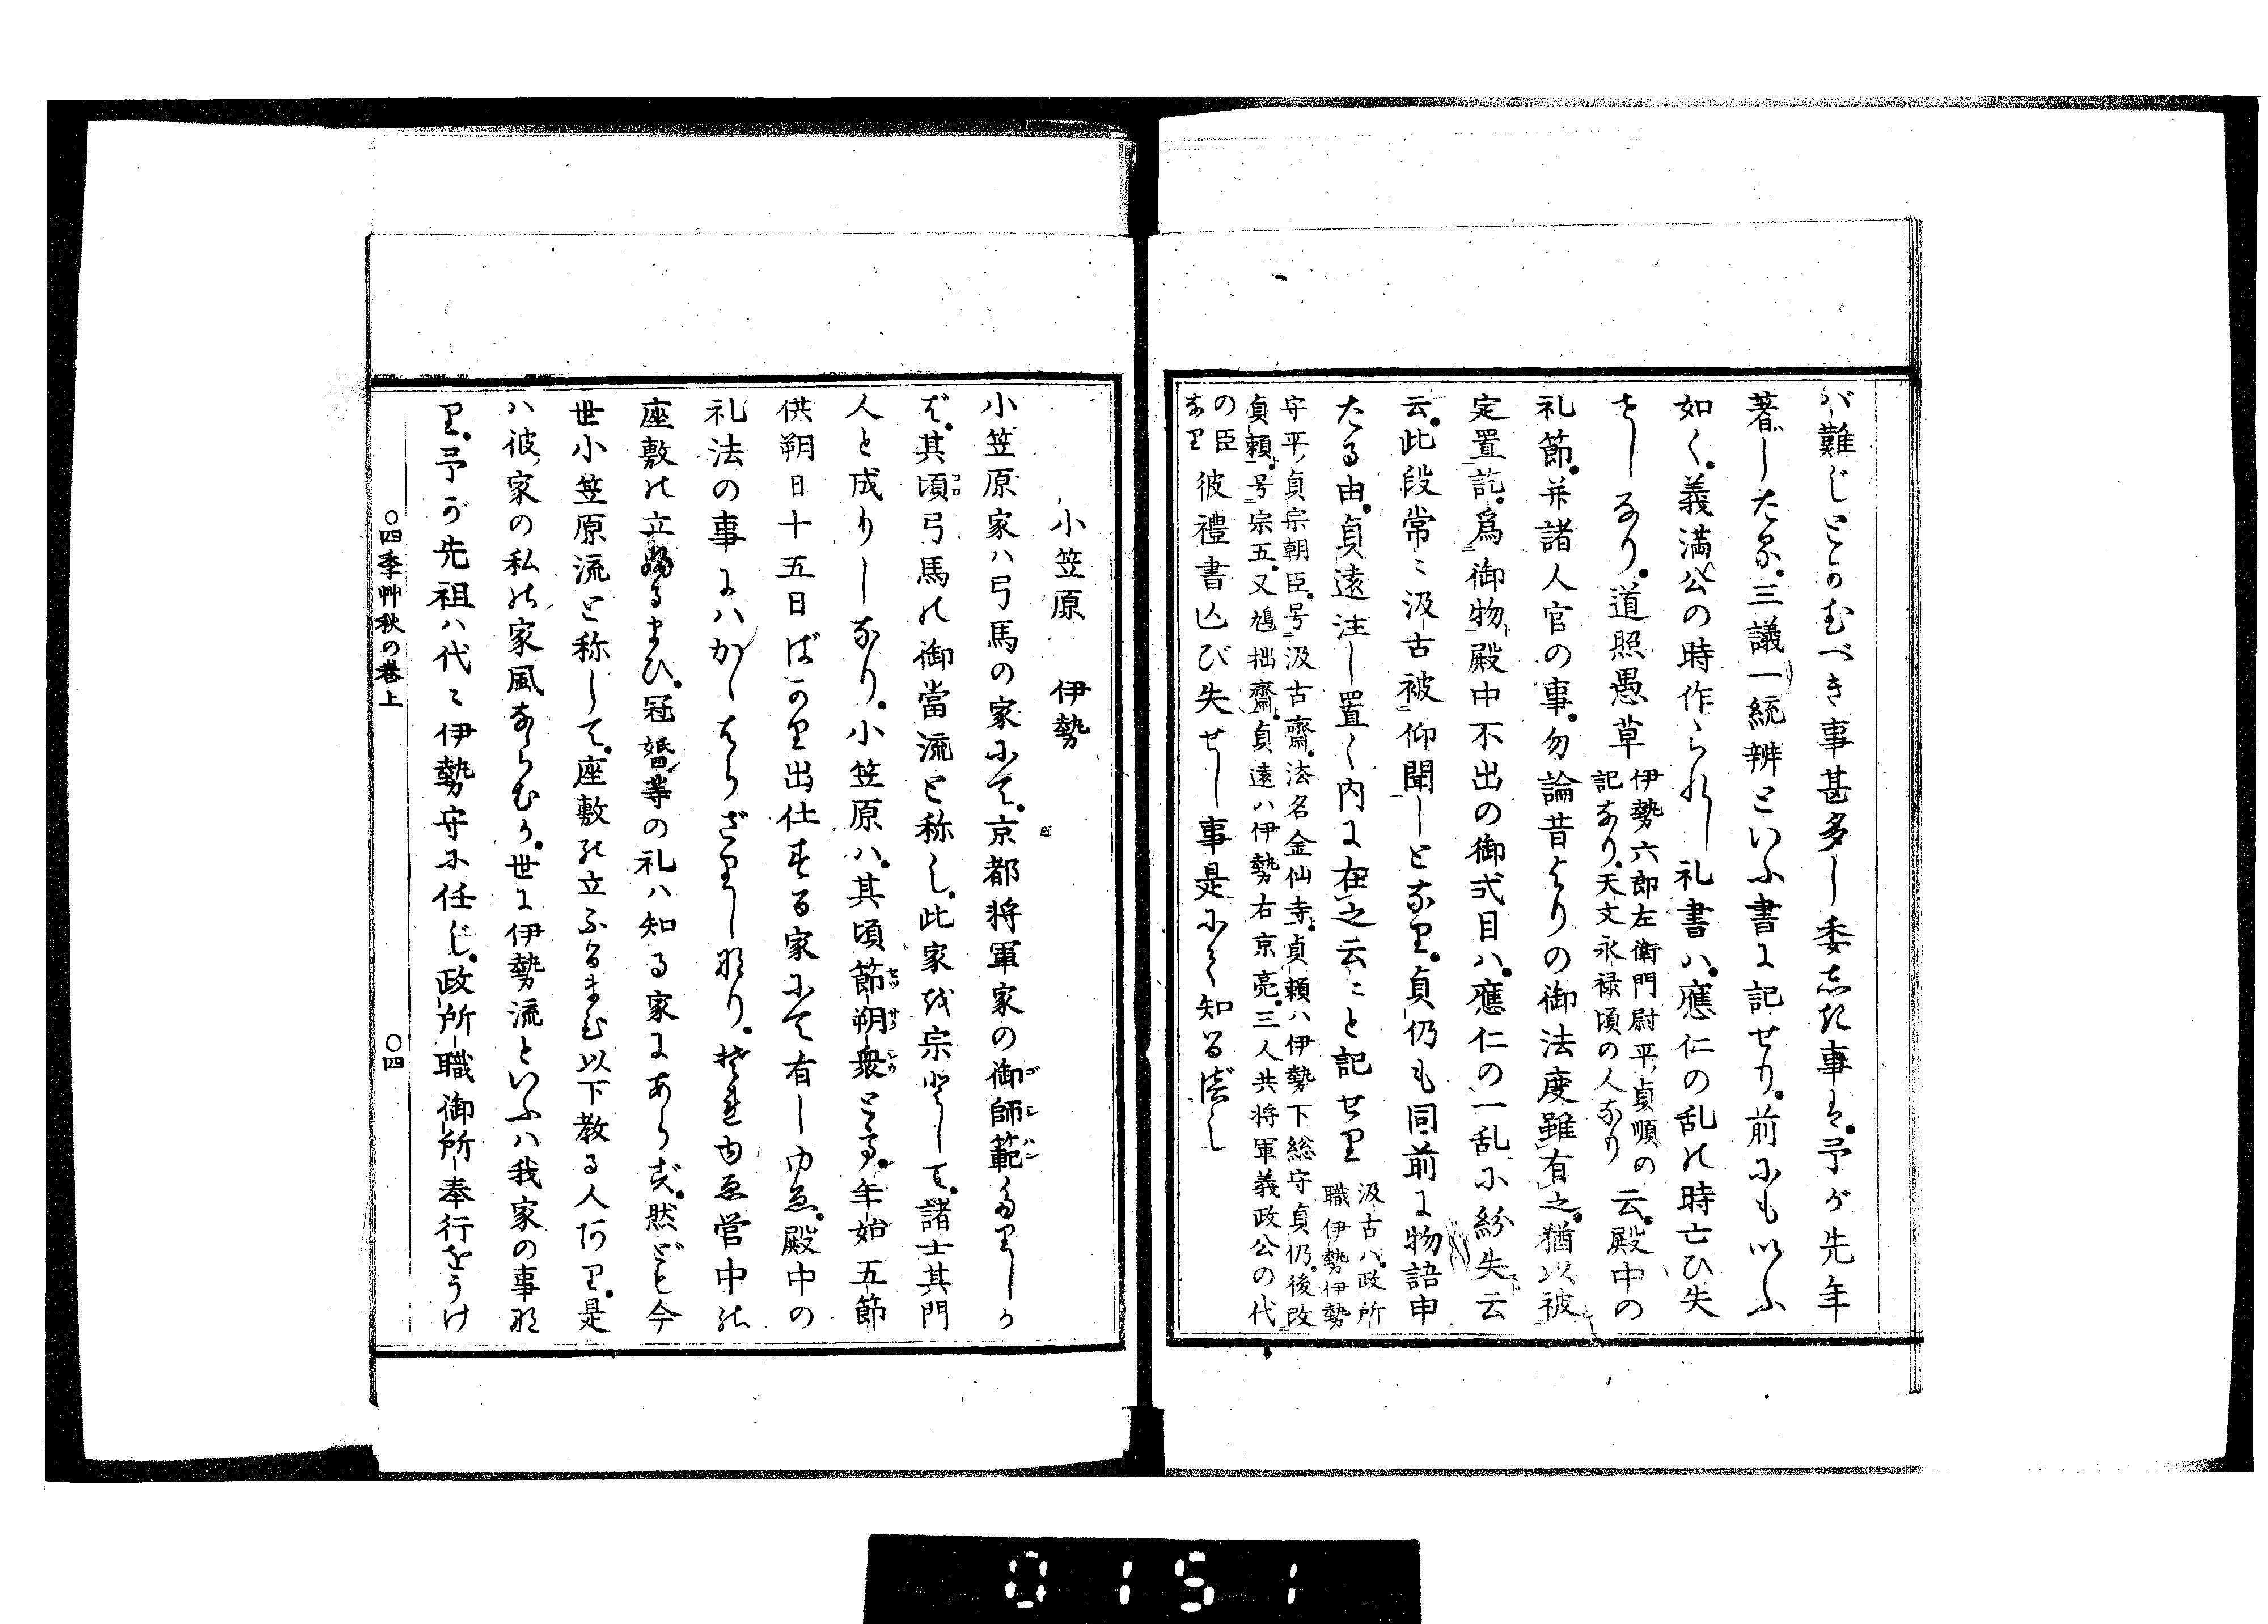 バ難じとゞむべき事甚多し委しき事は。予が先年
著したる。三議一統辨といふ書に記せり。前にもいふ
如く。義満公の時作られし礼書ハ。應仁の乱の時亡ひ失
せしなり。道照愚草伊勢六郎左衛門尉平ノ貞順の記なり。天文永禄頃の人なり云。殿中の
礼節。并諸人官の事。勿論昔よりの御法度雖有之。猶以被
定置訖。爲御物殿中不出の御式目ハ。應仁の一乱に紛失云
云。此段常〻汲古被仰聞しとなり。貞仍も同前に物語申
たる由。貞遠注し置く内に在之云〻と記せり汲古ハ。政所職伊勢伊勢
守平ノ貞宗朝臣。号汲古齋。法名金仙寺。貞頼ハ伊勢下総守貞仍。後改
貞頼。号宗五。又鳩拙齋。貞遠ハ伊勢右京亮。三人共将軍義政公の代
の臣なり彼禮書亡び失せし事是にて知るべし
小笠原　伊勢
小笠原家ハ弓馬の家にて。京都将軍家の御師範なりしか
ば。其頃弓馬の御當流と称し。此家を宗として。諸士其門
人と成りしなり。小笠原ハ。其頃節朔衆とて。年始五節
供朔日十五日ばかり出仕する家にて有しゆゑ。殿中の
礼法の事にハかゝはらざりしなり。それゆゑ営中の
座敷の立ふるまひ。冠婚等の礼ハ知る家にあらず。然ども今
世小笠原流と称して。座敷の立ふるまひ以下教る人あり。是
ハ彼家の私の家風ならむか。世に伊勢流といふハ我家の事な
り。予が先祖ハ代〻伊勢守に任じ。政所職御所奉行をうけ
〇四季艸秋の巻上
〇四
0151